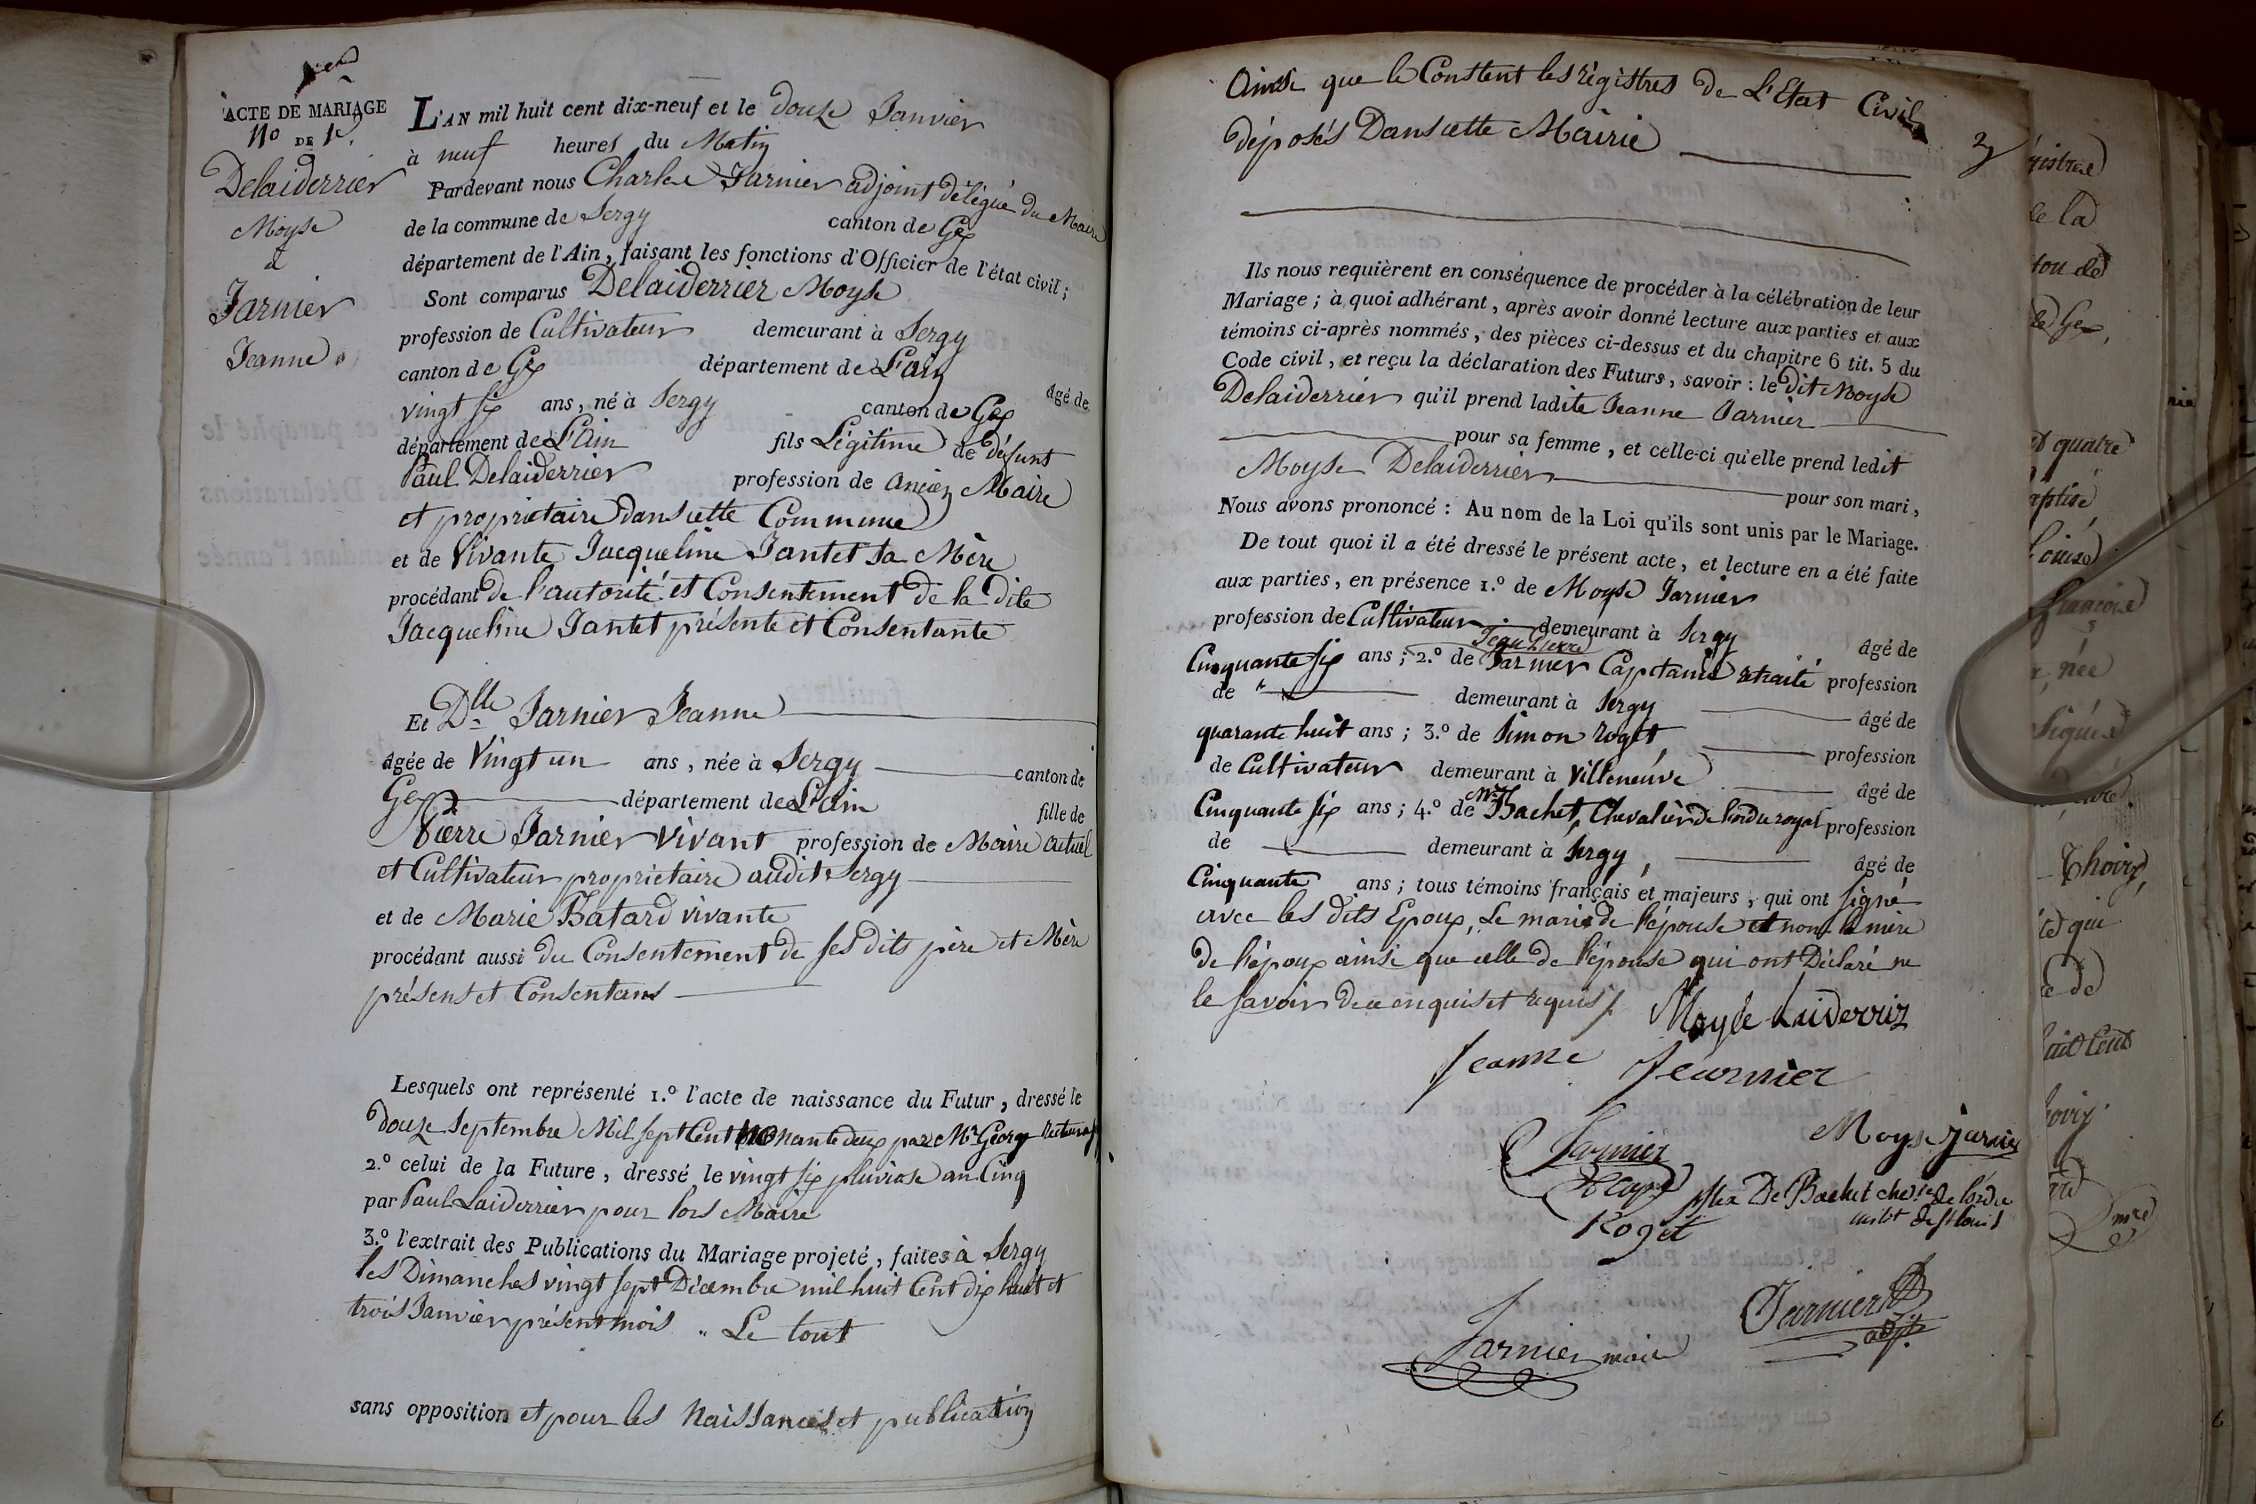 ACTE DE MARIAGE
No DE 1er.
Delaiderrier
Moyse
a
Jarnier
Jeanne
L'AN mil huit cent dix-neuf et le douze Janvier
à neuf heures du Matin
Pardevant nous Charle Jarnier adjoint délégué du Maire
de la commune de Sergy canton de Gex
département de l'Ain, faisant les fonctions d'Officier de l'état civil;
Sont comparus Delaiderrier Moyse
profession de Cultivateur demeurant à Sergy
canton de Gex département de L'ain âgé de
vingt six ans, né à Sergy canton de Gex
département de L'Ain fils Légitime de défunt
Paul Delaiderrier profession de ancien Maire
et proprietaire dans cette Commune
et de Vivante Jacqueline Jantet sa Mère
procédant de l'autorité et Consentement de la dite
Jacqueline Jantet présente et Consentante
Et Dlle Jarnier Jeanne
âgée de Vingt un ans, née à Sergy canton de
Gex département de L'ain fille de
Pierre Jarnier vivant profession de Maire actuel
et Cultivateur proprietaire audit Sergy
et de Marie Batard vivante
procédant aussi du Consentement de ses dits père et Mère
présens et Consentans
Lesquels ont représenté 1.° l'acte de naissance du Futur, dressé le
douze Septembre Mil sept Cent nonante deux par Mr Georgy
2.° celui de la Future, dressé le vingt six pluviose an Cinq
par Paul Laiderrier pour lors Maire
3.° l'extrait des Publications du Mariage projeté, faites à Sergy
les Dimanches vingt sept Décembre mil huit Cent dix huit et
trois Janvier présent mois " Le tout
sans opposition et pour les naissances et publication
Ainsi que le Constent les régistres de L'Etat Civil
déposés Dans cette Mairie
Ils nous requièrent en conséquence de procéder à la célébration de leur
Mariage; à quoi adhérant, après avoir donné lecture aux parties et aux
témoins ci-après nommés, des pièces ci-dessus et du chapitre 6 tit. 5 du
Code civil, et reçu la déclaration des Futurs, savoir: le dit Moyse
Delaiderrier qu'il prend ladite Jeanne Jarnier
pour sa femme, et celle-ci qu'elle prend ledit
Moyse Delaiderrier pour son mari,
Nous avons prononcé: Au nom de la Loi qu'ils sont unis par le Mariage.
De tout quoi il a été dressé le présent acte, et lecture en a été faite
aux parties, en présence 1.° de Moyse Jarnier
profession de Cultivateur demeurant à Sergy âgé de
Jean Pierre
Cinquante six ans; 2.° de Jarnier Capitaine retraité profession
de " demeurant à Sergy âgé de
quarante huit ans; 3.° de Simon roget, profession
de Cultivateur demeurant à Villeneuve âgé de
Cinquante six ans; 4.° de Mr Bachet, Chevalier de l'ordre royal profession
de demeurant à Sergy, âgé de
Cinquante ans; tous témoins français et majeurs, qui ont signé
avec les dits Epoux, Le mari de l'épouse et non la mère
de l'époux ainsi que celle de l'épouse qui ont Déclaré ne
le savoir de ce enquis et requis /.
Moyse Laiderriez
Jeanne Jeurnier
Jarnier
Moyse jarnier
De Bachet chev.er de l'ordre
de st louis
Roget
Jarnier maire
Jarnier
adjt.